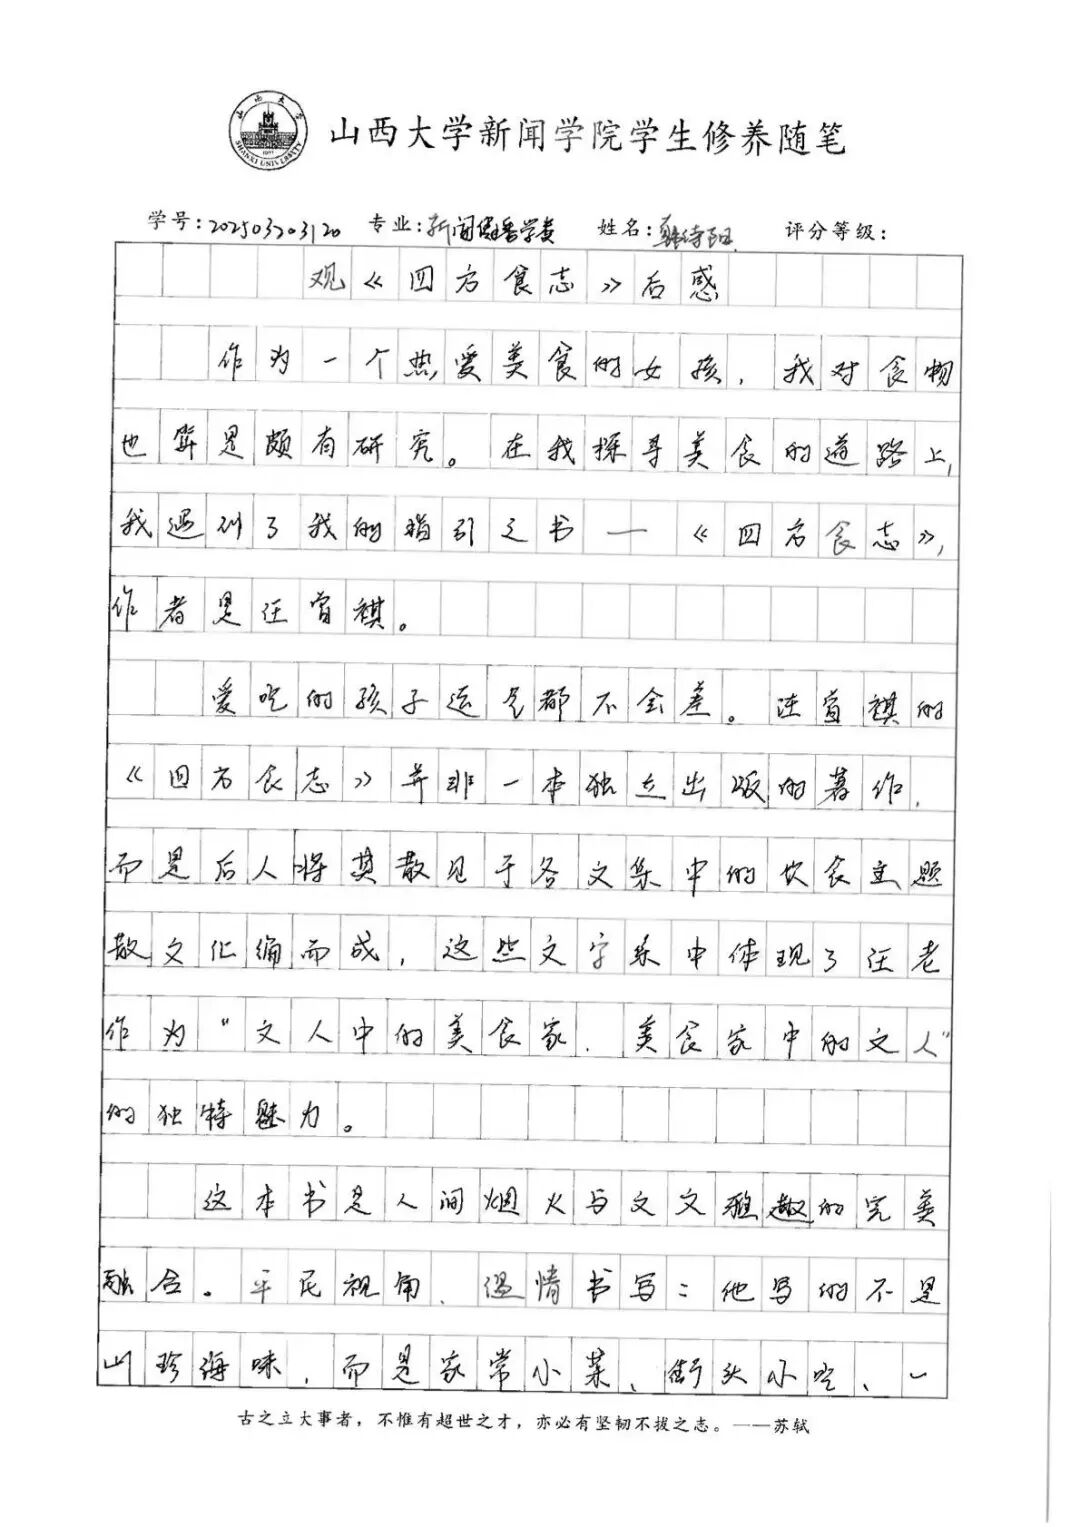 山西大学
SHANXI UNIVERSITY
山西大学新闻学院学生修养随笔
学号:202503203120 专业:新闻传播学类 姓名:韩诗阳 评分等级:
观《四方食志》后感
作为一个热爱美食的女孩,我对食物
也算是颇有研究。在我探寻美食的道路上,
我遇到了我的指引之书—《四方食志》,
作者是汪曾祺。
爱吃的孩子运气都不会差。汪曾祺的
《四方食志》并非一本独立出版的著作,
而是后人将其散见于各文集中的饮食主题
散文汇编而成,这些文字集中体现了汪老
作为“文人中的美食家,美食家中的文人”
的独特魅力。
这本书是人间烟火与文文雅趣的完美
融合。平民视角、温情书写:他写的不是
山珍海味,而是家常小菜、街头小吃、一
古之立大事者,不惟有超世之才,亦必有坚韧不拔之志。——苏轼